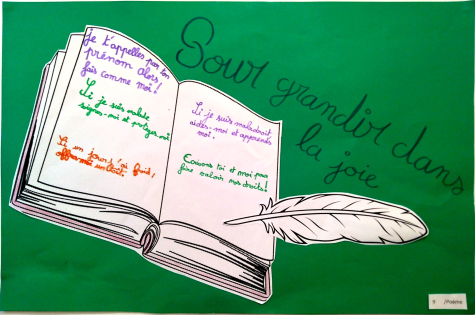 Pour grandir dans
la joie
je t'appelles par ton
prénom alors
fais comme moi!
Si je suis malade
signes-moi et protèges moi
Si un jour j'ai froid,
offres-moi un toit.
Si je suis maladroit
aides-moi et apprends
moi.
Crions toi et moi pour
faire valoir nos droits!
9 /Poème